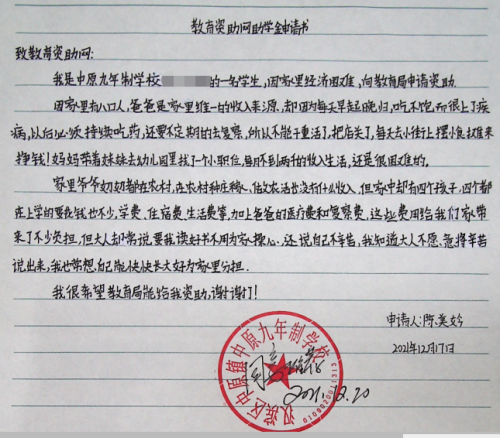 教育资助网助学金申请书
致教育资助网:
我是中原九年制学校 的一名学生,因家里经济困难,向教育局申请资助.
因家里有八口人,爸爸是家里唯一的收入来源,却因为每天早起晚归,吃不饱,而很上了疾
病,以后必须持续吃药,还要不定期的去复察,所以不能干重活了,把店关了,每天去小街上摆小食摊来
挣钱!妈妈带着妹妹去幼儿园里找了个小职位,每月不到两千的收入生活,还是很困难的.
家里爷爷奶奶都在农村,在农村种庄稼,但农活也没有什么收入,但家中却有四个孩子,四个都
在上学的要花钱也不少,学费、住宿费、生活费等,加上爸爸的医疗费和复察费,这些费用给我们家带
来了不少负担,但大人却常说,要我读好书不用为家操心,还说自己不辛苦,我知道大人不愿意将辛苦
说出来,我也常想,自己能快快长大好为家里分担.
我很希望教育局能给我资助,谢谢了!
申请人:陈美
2021年12月17日
汉滨区中原镇中原九年制学校
2021.12.20